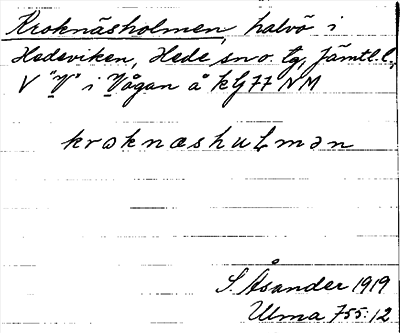 Kroknäsholmen, halvö i
Hedeviken, Hede sn o. tg, Jämtl. l.,
V "V" i Vågan å kG 77 NM
krɷknæshuLmən
S Åsander 1919
Ulma 755:12